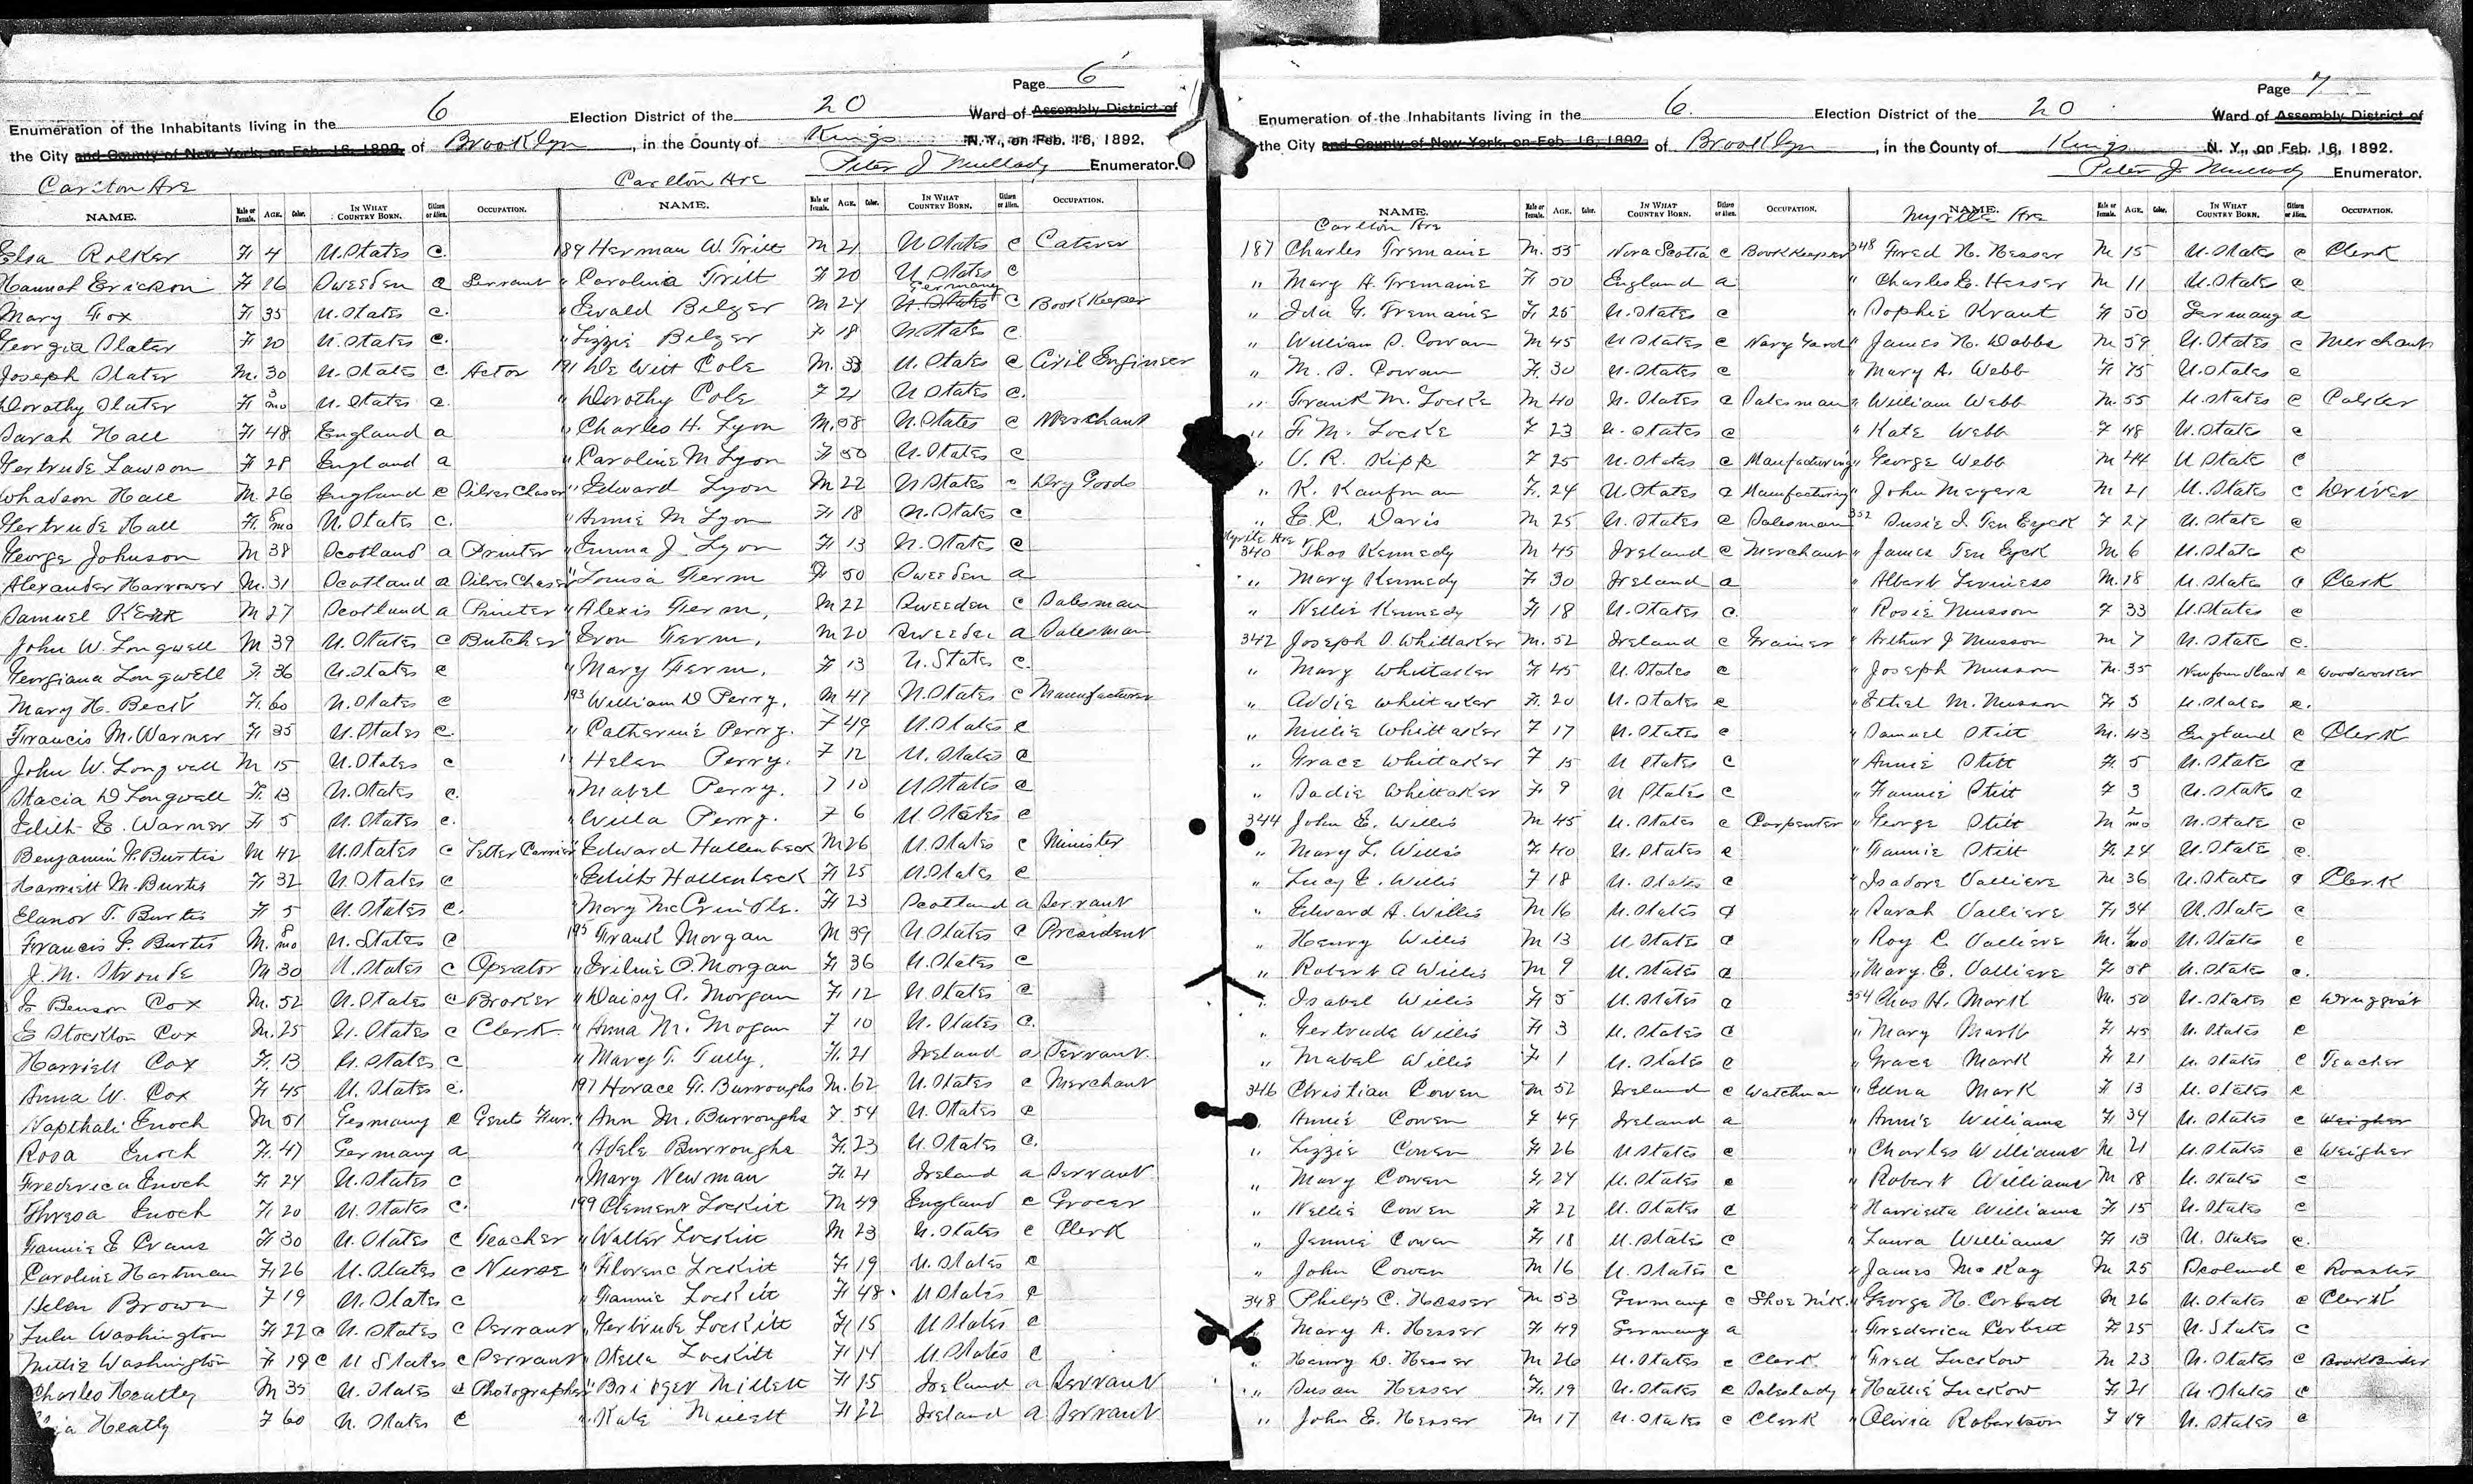 Page 6
Enumeration of the Inhabitants living in the 6 Election District of the 20 Ward of Assembly District of
the City and County of New York, on Feb. 16, 1892, of Brooklyn, in the County of Kings N. Y., on Feb. 16, 1892.
Peter J Mullady Enumerator.
Carlton Ave
NAME. Male or Female. AGE. Color. IN WHAT COUNTRY BORN. Citizen or Alien. OCCUPATION.
Elsa Rolker F 4 U. States C.
Hannah Erickson F 26 Sweeden a Servant
Mary Fox F 35 U. States C.
Georgia Slater F 20 U. States C.
Joseph Slater M. 30 U. States C Actor
Dorothy Slater F 3 mo U. States C.
Sarah Hall F 48 England a
Gertrude Lawson F 28 England a
Hall M 26 England C Silver Chaser
Gertrude Hall F. 8 mo U. States C.
George Johnson M 38 Scotland a Printer
Alexander Harrower M. 31 Scotland a Silver Chaser
Samuel Kerr M 27 Scotland a Printer
John W. Longwell M 39 U. States C Butcher
Georgiana Longwell F. 36 U. States C
Mary H. Beck F. 60 U. States C
Francis M. Warner F 35 U. States C.
John W. Longwell M 15 U. States C
Stacia D Longwell F. 13 U. States C.
Edith E. Warner F 5 U. States C.
Benjamin F. Burtis M 42 U. States C Letter Carrier
Harriett M. Burtis F 32 U. States C
Elanor T. Burtis F 5 U. States C.
Francis F. Burtis M. 8 mo U. States C
J. M. Stroude M 30 U. States C Operator
E Benson Cox M. 52 U. States C Broker
E Stockton Cox M. 25 U. States C Clerk
Harriett Cox F. 13 U. States C
Anna W. Cox F 45 U. States C.
Napthali Enoch M 51 Germany C Gents Fur.
Rosa Enoch F. 47 Germany a
Frederica Enoch F 24 U. States C
Thresa Enoch F 20 U. States C.
Fannie E Evans F 30 U. States C Teacher
Caroline Hartman F 26 U. States C Nurse
Helen Brown F 19 U. States C
Lulu Washington F 22 C U. States C Servant
Millie Washington F 19 C U States C Servant
Charles Heatley M 35 U. States C Photographer
Heatly F 60 U. States C
Carlton Ave
NAME. Male or Female. AGE. Color. IN WHAT COUNTRY BORN. Citizen or Alien. OCCUPATION.
189 Herman W. Tritt M 21 U States C Caterer
" Carolina Tritt F 20 U. States C
" Ewald Belger M 24 U. States Germany C Book Keeper
" Lizzie Belger F 18 U. States C
191 De Witt Cole M. 33 U. States C Civil Engineer
" Dorothy Cole F 21 U States C.
" Charles H. Lyon M. 58 U. States C Merchant
" Caroline M Lyon F 50 U. States C
" Edward Lyon M 22 U States C Dry Goods
" Annie M Lyon F 18 U. States C
" Emma J Lyon F 13 U. States C
" Louisa Ferm F 50 Sweeden a
" Alexis Ferm, M 22 Sweeden C Salesman
" Evon Ferm, M 20 Sweeden a Salesman
" Mary Ferm. F 13 U. States C.
193 William D Perry. M 47 U. States C Manufacturer
" Catherine Perry. F 49 U. States C
" Helen Perry. F 12 U. States C
" Mabel Perry. F 10 U States C
" Willa Perry. F 6 U. States C
" Edward Hallenback M 26 U. States C Minister
" Edith Hallenbeck F 25 U. States C
" Mary McCrindle. F 23 Scotland a Servant
195 Frank Morgan M 39 U States C President
" Eviline O. Morgan F 36 U. States C
" Daisy A. Morgan F 12 U. States C
" Anna M. Mogan F 10 U. States C.
" Mary T. Tully. F. 21 Ireland a Servant.
197 Horace F. Burroughs M. 62 U. States C Merchant
" Ann M. Burroughs F. 54 U. States C
" Adele Burroughs F. 23 U. States C.
" Mary Newman F. 21 Ireland a Servant.
199 Clement Lockitt M 49 England C Grocer
" Walter Lockitt M 23 U. States C Clerk
" Florenc Lockitt F 19 U. States C
" Fannie Lockitt F 48. U States C
" Gertrude Lockitt F 15 U States C
" Stella Lockitt F 14 U. States C
" Bridget Millett F 15 Ireland a Servant
" Kate Millett F 22 Ireland a Servant
Page 7
Enumeration of the Inhabitants living in the 6. Election District of the 20 Ward of Assembly District of
the City and County of New York, on Feb. 16, 1892, of Brooklyn, in the County of Kings N. Y., on Feb. 16, 1892.
Peter J Mullady Enumerator.
NAME. Male or Female. AGE. Color. IN WHAT COUNTRY BORN. Citizen or Alien. OCCUPATION.
Carlton Ave
187 Charles Tremaine M. 55 Nova Scotia C Book Keeper
" Mary A. Tremaine F 50 England a
" Ida G. Tremaine F. 25 U. States C
" William S. Cowan M 45 U States C Navy Yard
" M. S. Cowan F. 30 U. States C
" Frank M. Locke M 40 U. States C Salesman
" F M. Locke F 23 U. States C
" V. R. Kipp F 25 U. States C Manufacturing
" K. Kaufman F. 24 U States C Manufacturing
" E. C. Davis M 25 U. States C Salesman
Myrtle Ave
340 Thos Kennedy M 45 Ireland C Merchant
" Mary Kennedy F. 30 Ireland a
" Nellie Kennedy F 18 U. States C.
342 Joseph S. Whittaker M. 52 Ireland C Grainer
" Mary Whittaker F 45 U. States C
" Addie Whittaker F. 20 U. States C
" Millie Whittaker F 17 U. States C
" Grace Whittaker F 15 U States C
" Sadie Whittaker F 9 U States C
344 John E. Willis M 45 U. States C Carpenter
" Mary L. Willis F. 40 U. States C
" Lucy E. Willis F 18 U. States C
" Edward A. Willis M 16 U. States C
" Henry Willis M 13 U. States C
" Robert A Willis M 9 U. States C
" Isabel Willis F 5 U. States C
" Gertrude Willis F 3 U. States C
" Mabel Willis F 1 U. States C
346 Christian Cowen M 52 Ireland C Watchman
" Annie Cowen F 49 Ireland a
" Lizzie Cowen F 26 U States C
" Mary Cowen F. 24 U. States C
" Nellie Cowen F 22 U. States C
" Jennie Cowen F 18 U. States C
" John Cowen M 16 U. States C
348 Philip C. Hesser M 53 Germany C Shoe Mk.
" Mary A. Hesser F 49 Germany a
" Henry D. Hesser M 26 U. States C Clerk
" Susan Hesser F. 19 U. States C Saleslady
" John E. Hesser M 17 U. States C Clerk
NAME. Male or Female. AGE. Color. IN WHAT COUNTRY BORN. Citizen or Alien. OCCUPATION.
Myrtle Ave
348 Fred H. Hesser M 15 U. States C Clerk
" Charles E. Hesser M 11 U. States C
" Sophie Kraut F 50 Germany a
" James H. Dobbs M 59 U. States C Merchant
" Mary A. Webb F 75 U. States C
" William Webb M. 55 U. States C Calker
" Kate Webb F 48 U. State C
" George Webb M 44 U State C
" John Megara M 21 U. States C Driver
352 Susie I. Ten Eyck F 27 U. State C
" James Ten Eyck M 6 U. State C
" Albert Leviness M. 18 U. States C Clerk
" Rosie Musson F 33 U. States C
" Arthur J Musson M 7 U. State C.
" Joseph Musson M. 35 Newfoundland C Woodworker
" Ethel M. Musson F 3 U. States C.
" Samuel Stitt M. 43 England C Clerk
" Annie Stitt F. 5 U. States C
" Fannie Stitt F 3 U. States C
" George Stitt M 2 mo U. State C
" Fannie Stitt F. 24 U. State C.
" Isadore Valliere M 36 U. State C Clerk
" Sarah Valliere F 34 U. State C
" Roy C. Valliere M. mo U. States C
" Mary. E. Valliere F 58 U. States C.
354 Chas H. Mark M. 50 U. States C Druggist
" Mary Mark F 45 U. States C
" Grace Mark F 21 U. States C Teacher
" Edna Mark F 13 U. States C
" Annie Williams F 34 U. States C Weigher
" Charles Williams M 21 U. States C Weigher
" Robert Williams M 18 U. States C
" Harrietta Williams F 15 U. States C
" Laura Williams F 13 U. States C.
" James McKay M 25 Scotland C Roaster
" George H. Corbett M 26 U. States C Clerk
" Frederica Corbett F 25 U. States C
" Fred Luckow M 23 U. States C Book Binder
" Hattie Luckow F. 21 U. States C
" Olivia Robertson F 19 U. States C